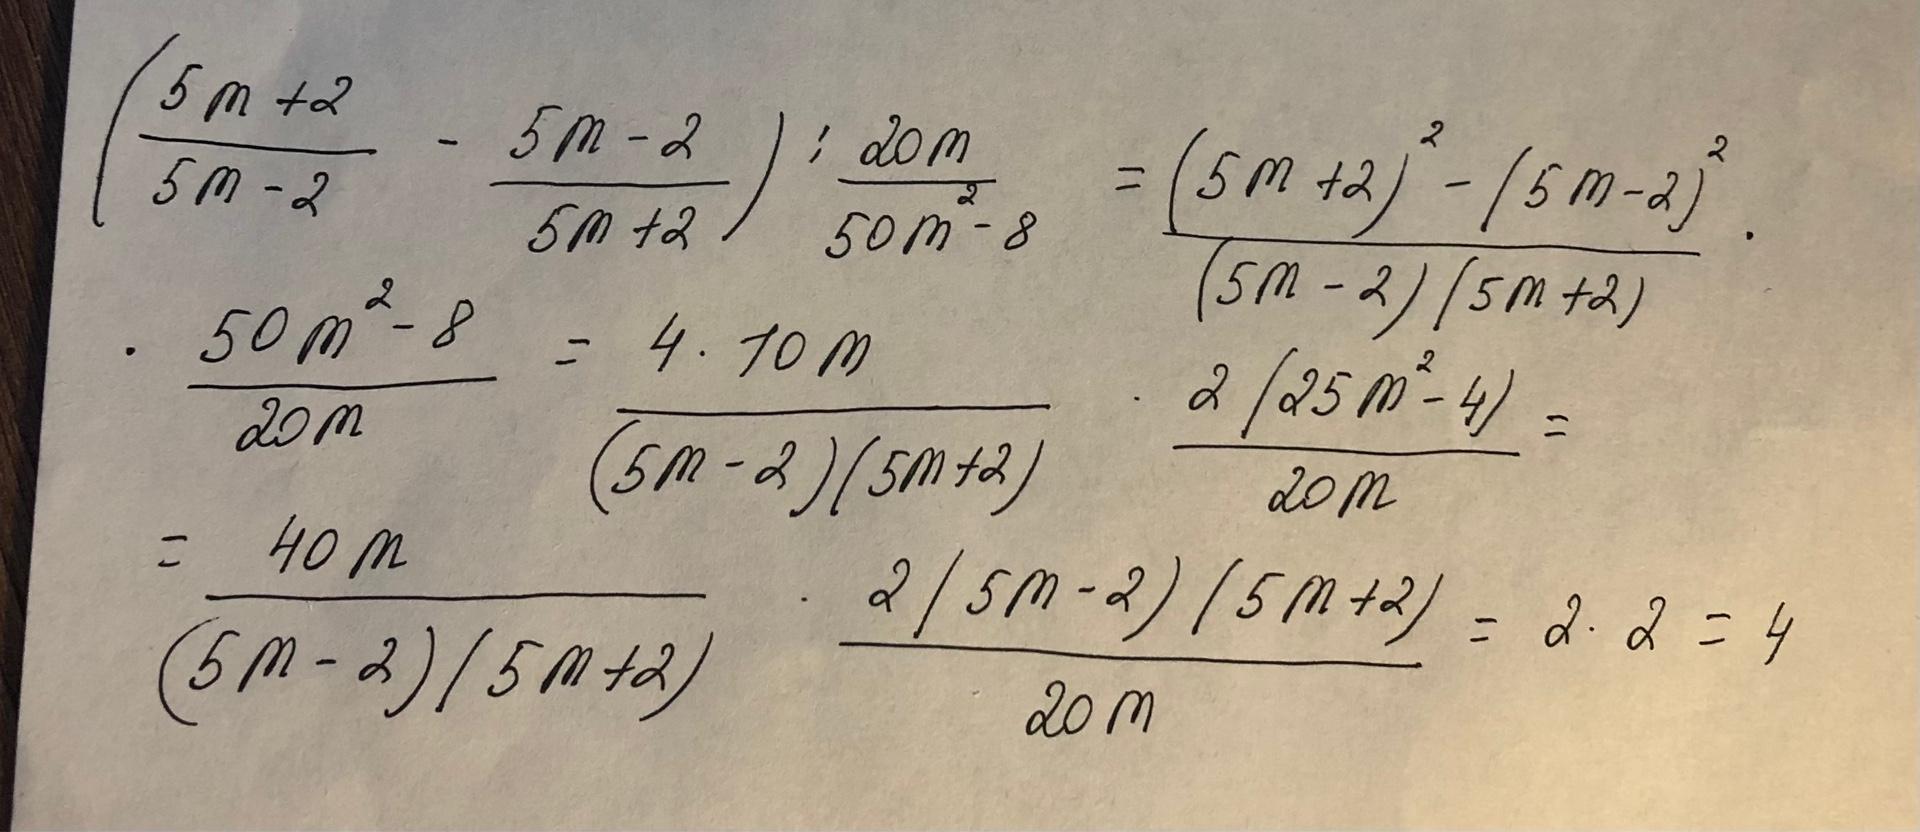 (5m+2/5m-2 - 5m-2/5m+2) : 20m/50m²-8 = (5m+2)²-(5m-2)²/(5m-2)(5m+2) ·
· 50m²-8/20m = 4·10m/(5m-2)(5m+2) · 2(25m²-4)/20m =
= 40m/(5m-2)(5m+2) · 2(5m-2)(5m+2)/20m = 2·2 = 4